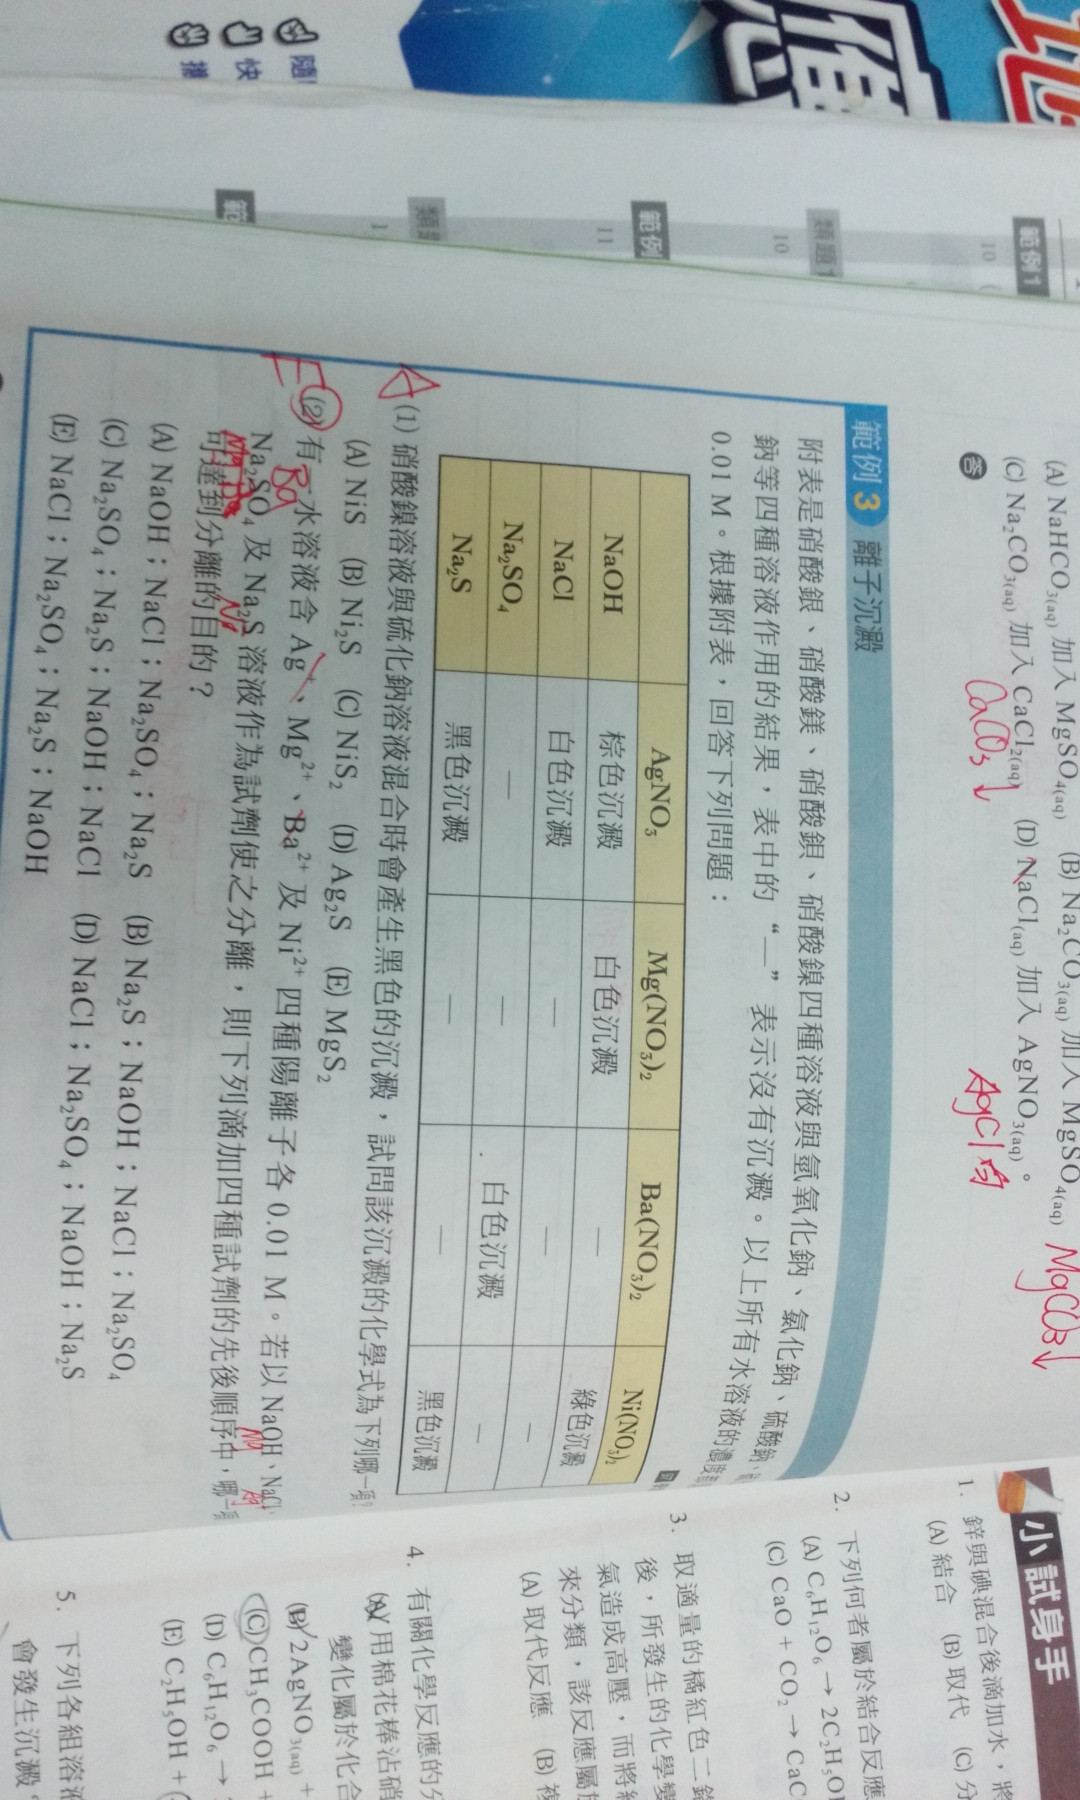 應
隨
快
範例1
10
類題1
10
範例
11
類題
1
範
(A) NaHCO₃(aq) 加入 MgSO₄(aq) (B) Na₂CO₃(aq) 加入 MgSO₄(aq) MgCO₃↓
(C) Na₂CO₃(aq) 加入 CaCl₂(aq) (D) NaCl(aq) 加入 AgNO₃(aq)。
答 CaCO₃↓ AgCl
範例 3 離子沉澱
附表是硝酸銀、硝酸鎂、硝酸鋇、硝酸鎳四種溶液與氫氧化鈉、氯化鈉、硫酸鈉、
鈉等四種溶液作用的結果,表中的“—”表示沒有沉澱。以上所有水溶液的濃度
0.01 M。根據附表,回答下列問題:
AgNO₃ Mg(NO₃)₂ Ba(NO₃)₂ Ni(NO₃)₂
NaOH 棕色沉澱 白色沉澱 — 綠色沉澱
NaCl 白色沉澱 — — —
Na₂SO₄ — — 白色沉澱 —
Na₂S 黑色沉澱 — — 黑色沉澱
(1) 硝酸鎳溶液與硫化鈉溶液混合時會產生黑色的沉澱,試問該沉澱的化學式為下列哪一項?
(A) NiS (B) Ni₂S (C) NiS₂ (D) Ag₂S (E) MgS₂
(2) 有一水溶液含 Ag⁺、Mg²⁺、Ba²⁺ 及 Ni²⁺ 四種陽離子各 0.01 M。若以 NaOH、NaCl、
Na₂SO₄ 及 Na₂S 溶液作為試劑使之分離,則下列滴加四種試劑的先後順序中,哪一項
可達到分離的目的?
(A) NaOH;NaCl;Na₂SO₄;Na₂S (B) Na₂S;NaOH;NaCl;Na₂SO₄
(C) Na₂SO₄;Na₂S;NaOH;NaCl (D) NaCl;Na₂SO₄;NaOH;Na₂S
(E) NaCl;Na₂SO₄;Na₂S;NaOH
Ba
小試身手
1. 鋅與碘混合後滴加水,將
(A) 結合 (B) 取代 (C) 分
2. 下列何者屬於結合反應
(A) C₆H₁₂O₆ → 2C₂H₅OH
(C) CaO + CO₂ → CaC
3. 取適量的橘紅色二鉻
後,所發生的化學變
氣造成高壓,而將
來分類,該反應屬於
(A) 取代反應 (B) 複
4. 有關化學反應的分
(A) 用棉花棒沾硝
變化屬於化合
(B) 2AgNO₃(aq) +
(C) CH₃COOH +
(D) C₆H₁₂O₆ →
(E) C₂H₅OH +
5. 下列各組溶液
會發生沉澱